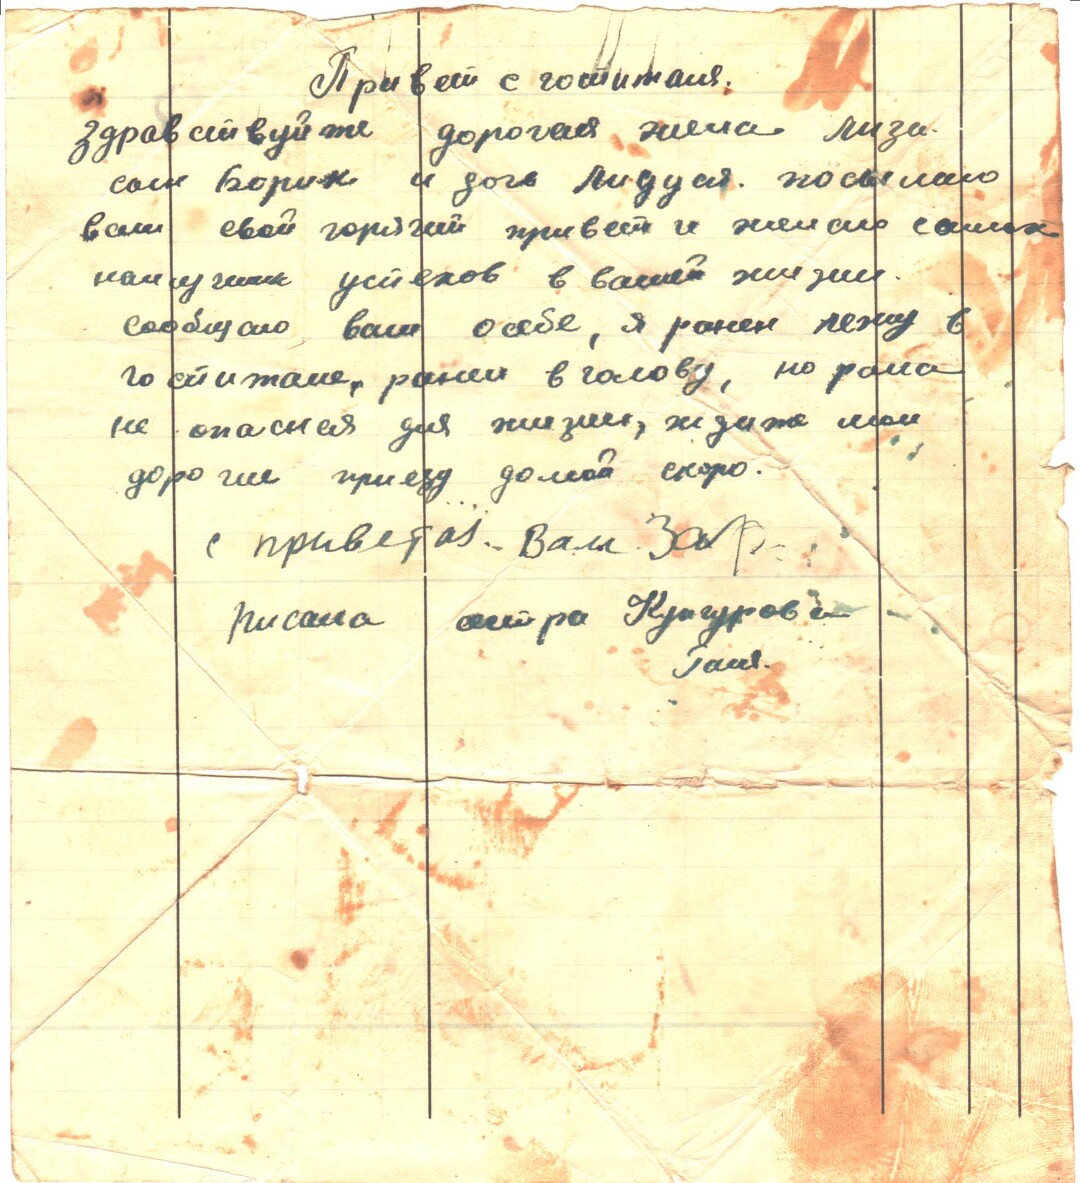 Привет с госпиталя.
Здравствуйте дорогая жена Лиза.
сын Борик и дочь Лидуся. посылаю
вам свой горячий привет и желаю самых
наилучших успехов в вашей жизни.
сообщаю вам осебе, я ранен лежу в
госпитале, ранен вголову, но рана
не опасная для жизни, ждите мои
дорогие приезд домой скоро.
с приветом. Вам
писала сестра Кунгурова
Галя.